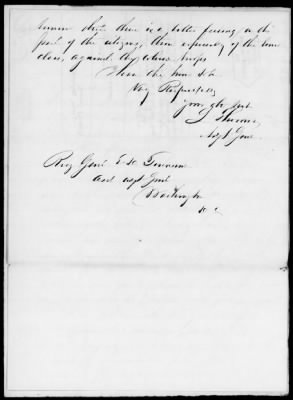 there is a bitter feeling on the
part of the citizens, more especially of the lower
class, against the colored troops
I have the honor to be
Very Respectfully
Your obt svt
Brig Genl E. D. Townsend
Asst Adjt Genl
Washington
D C